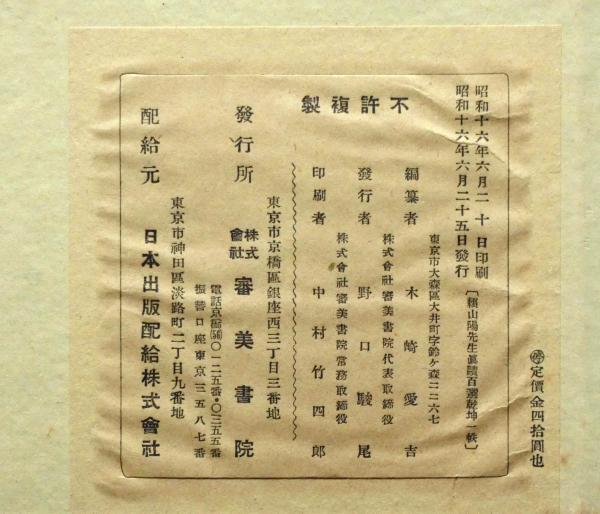 昭和十六年六月二十日印刷
昭和十六年六月二十五日發行
〔頼山陽先生眞蹟百選乾坤一帙〕
㊕定價金四拾圓也
不許複製
東京市大森區大井町字鈴ヶ森二二六七
編纂者 木崎愛吉
株式會社審美書院代表取締役
發行者 野口駿尾
株式會社審美書院常務取締役
印刷者 中村竹四郎
東京市京橋區銀座西三丁目三番地
發行所 株式會社 審美書院
電話京橋(56)〇一二五番・〇三五五番
振替口座東京三五八七番
東京市神田區淡路町二丁目九番地
配給元 日本出版配給株式會社